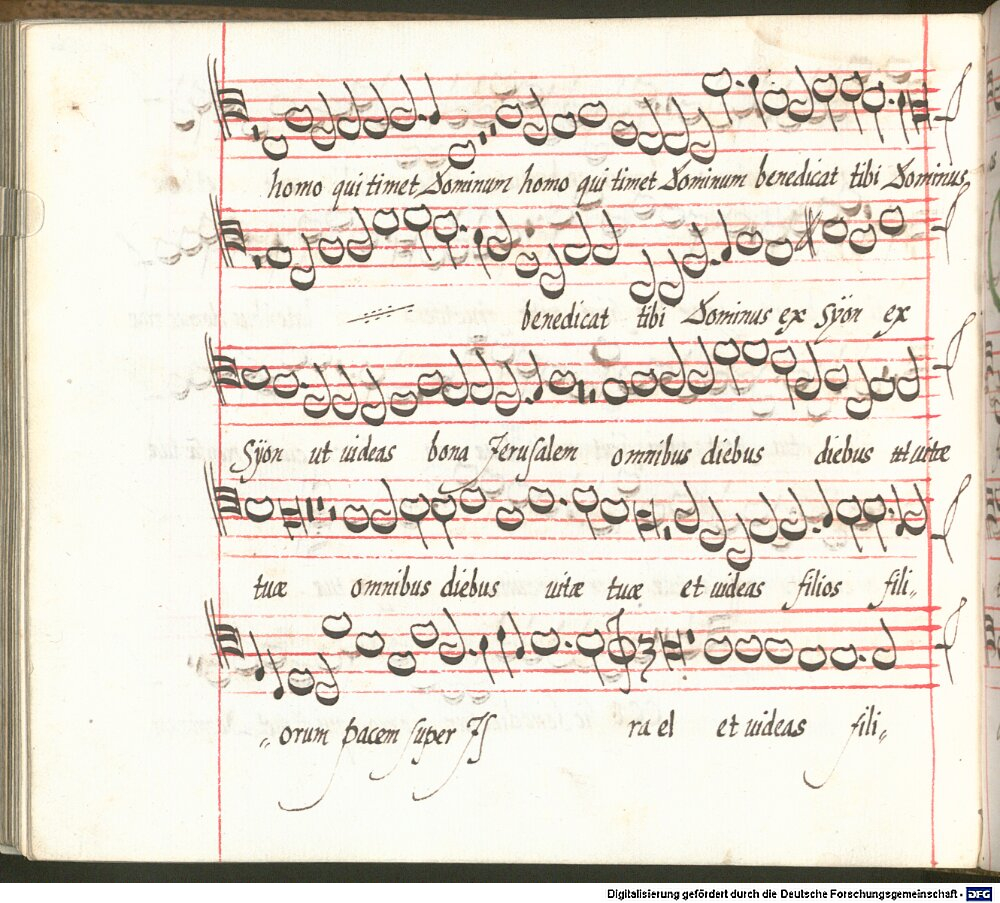 homo qui timet Dominum homo qui timet Dominum benedicat tibi Dominus
benedicat tibi Dominus ex Syon ex
Syon ut uideas bona Jerusalem omnibus diebus diebus uitæ
tuæ omnibus diebus uitæ tuæ et uideas filios fili„
„orum pacem super Is rael et uideas fili„
Digitalisierung gefördert durch die Deutsche Forschungsgemeinschaft - DFG